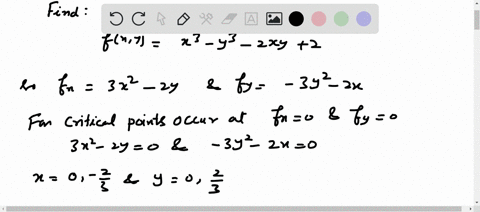 Find:
f(x,y) = x³-y³-2xy+2
So fx = 3x²-2y & fy = -3y²-2x
For critical points occur at fx=0 & fy=0
3x²-2y=0 & -3y²-2x=0
x = 0, -2/3 & y = 0, 2/3